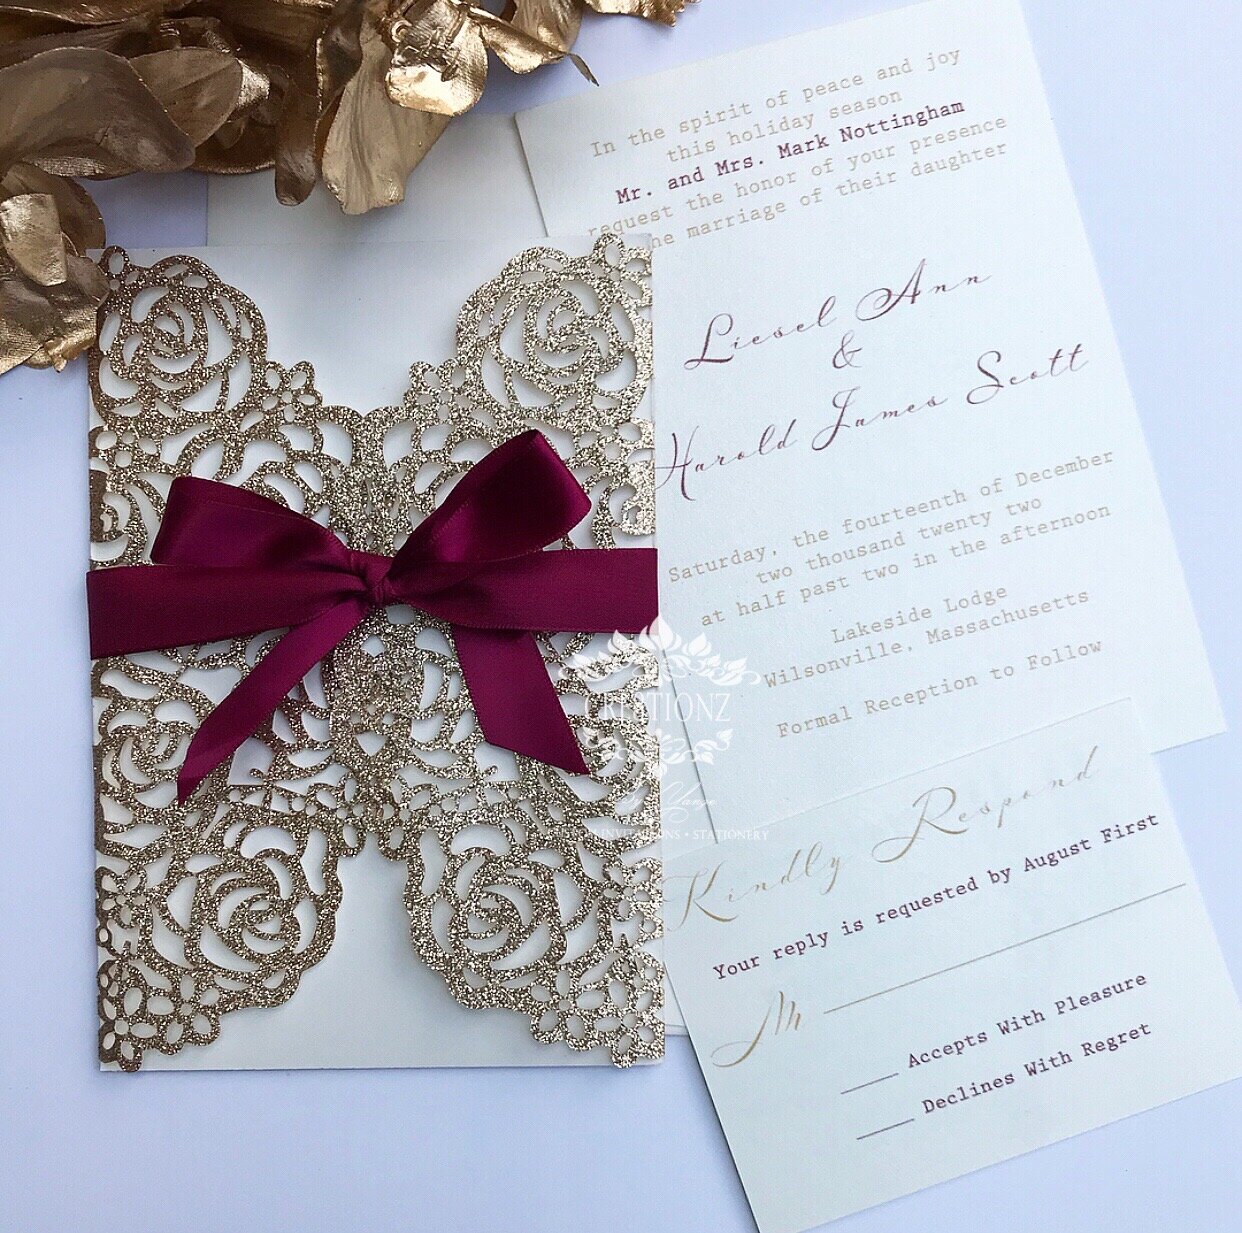 In the spirit of peace and joy
this holiday season
Mr. and Mrs. Mark Nottingham
request the honor of your presence
marriage of their daughter
Liesel Ann
&
Harold James Scott
Saturday, the fourteenth of December
two thousand twenty two
at half past two in the afternoon
Lakeside Lodge
Wilsonville, Massachusetts
Formal Reception to Follow
Kindly Respond
Your reply is requested by August First
M
Accepts With Pleasure
Declines With Regret
CRE8TIONZ
STATIONERY